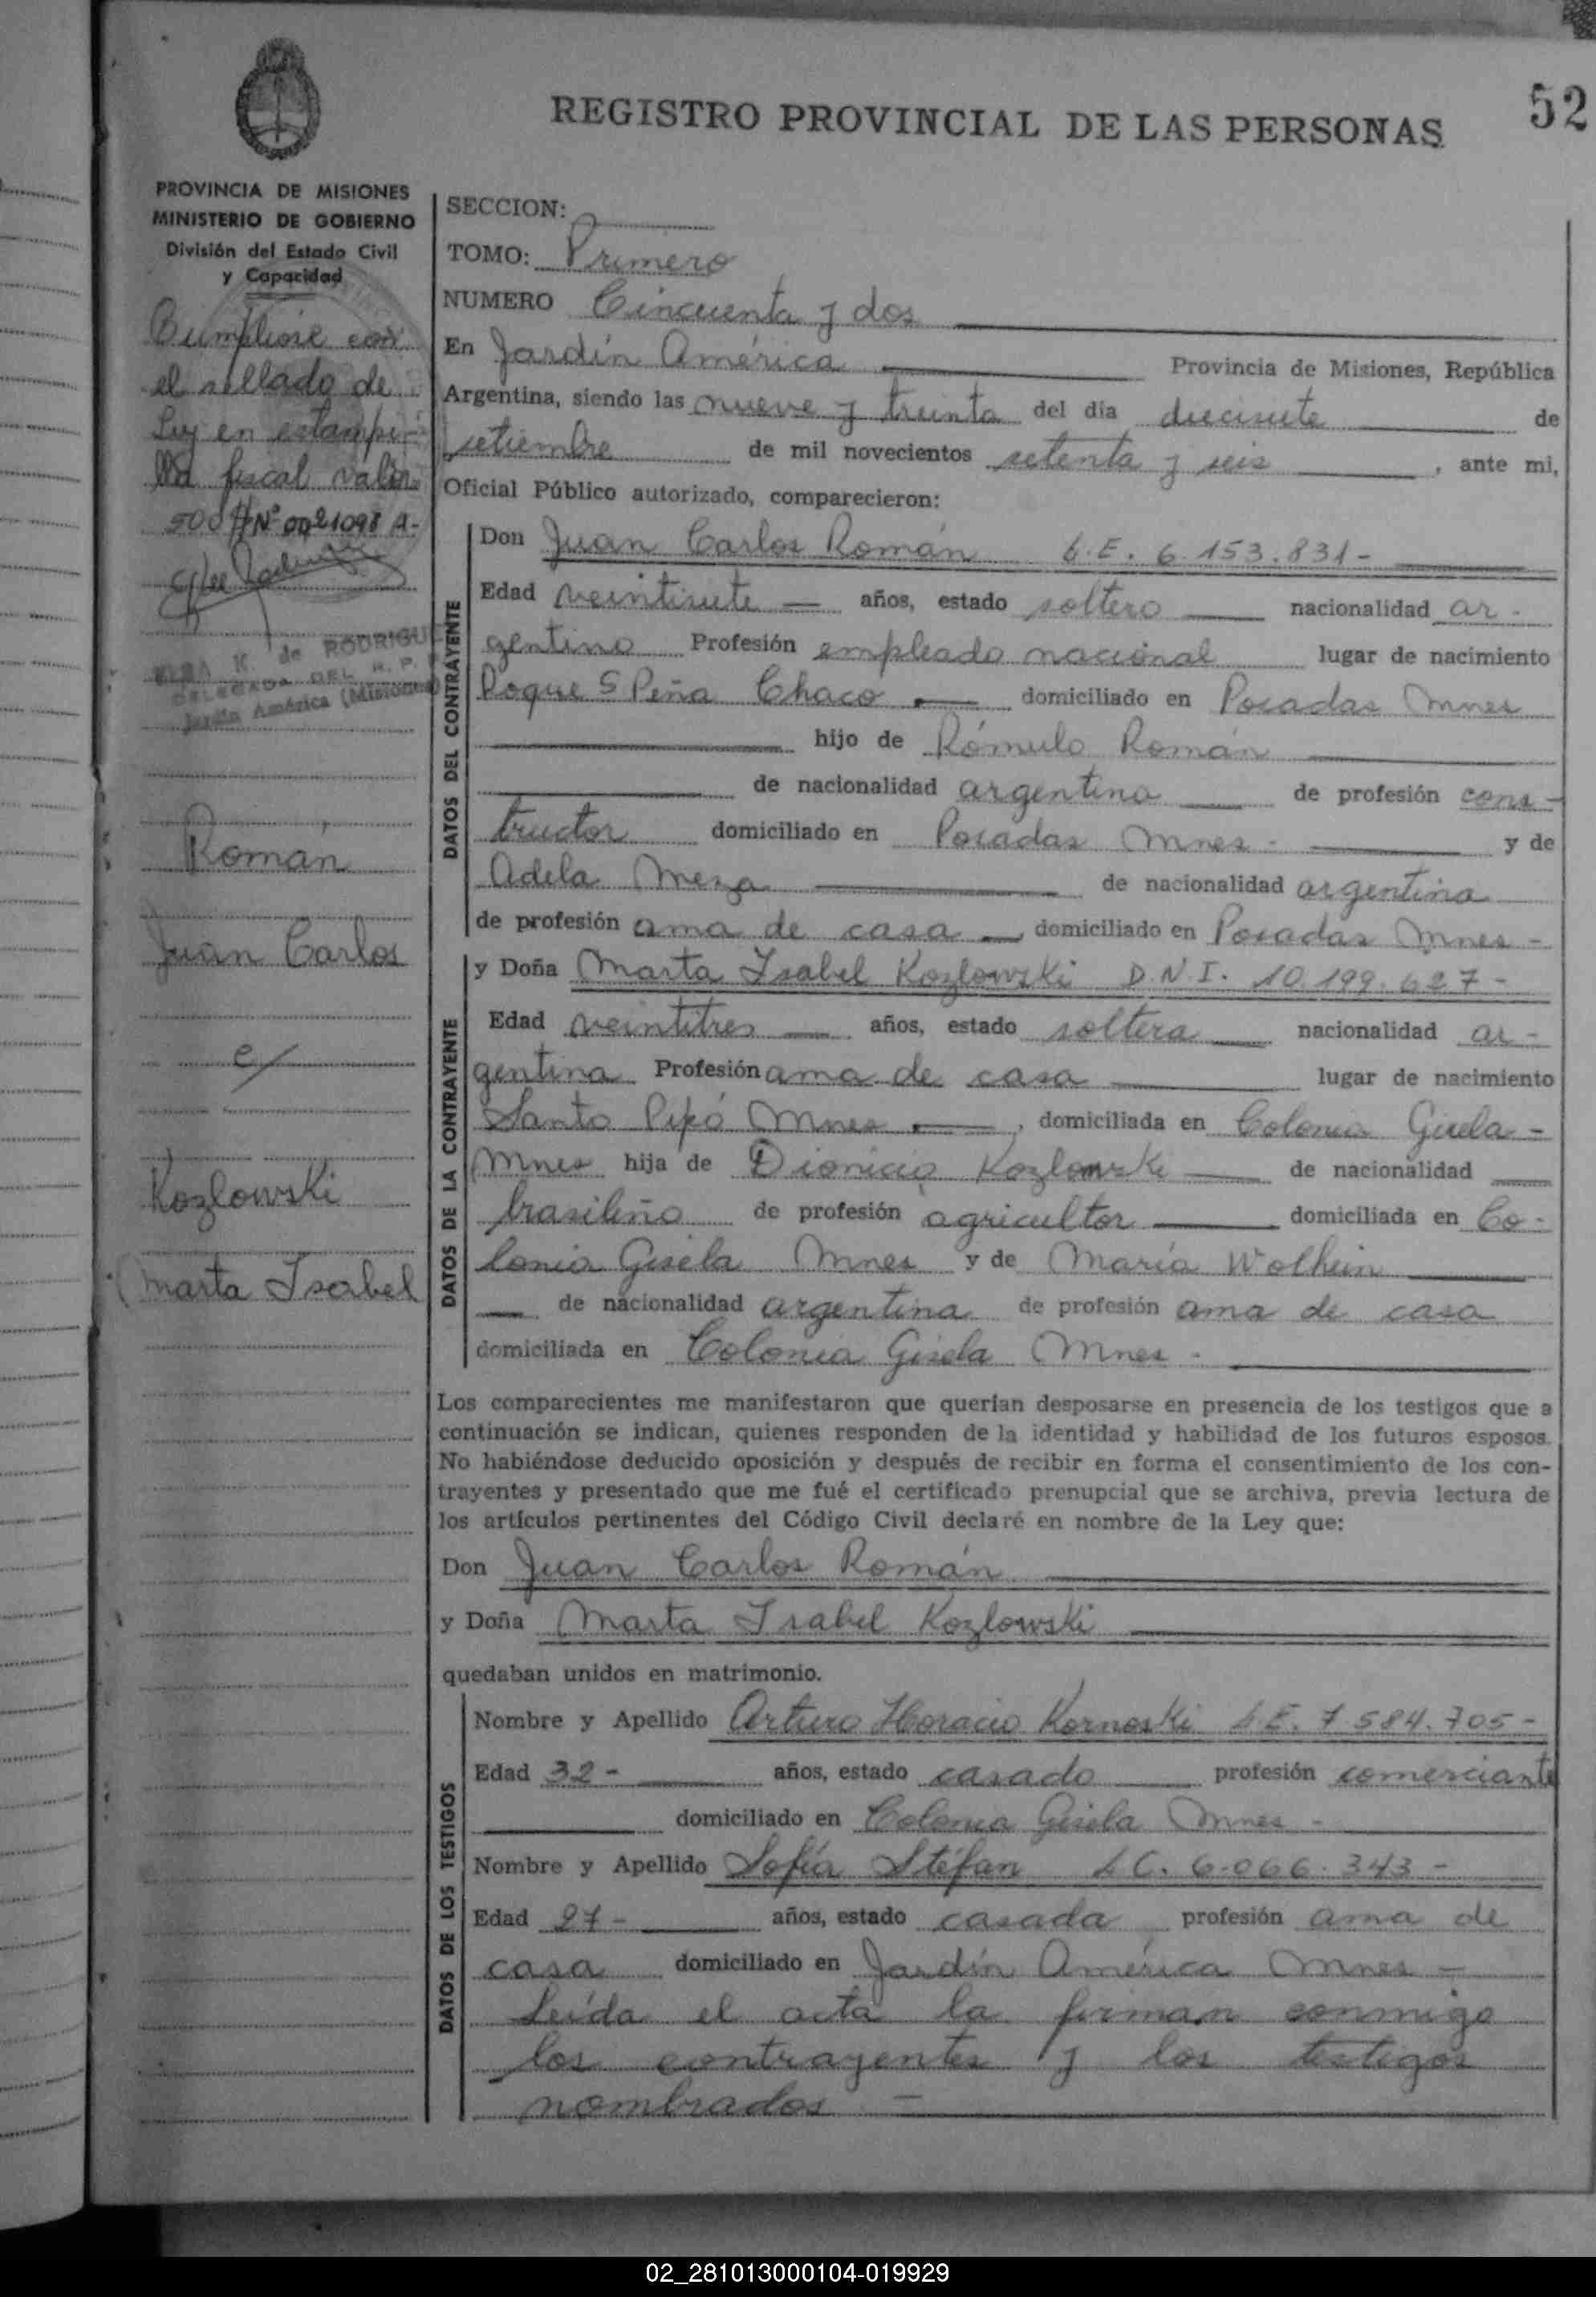 52
REGISTRO PROVINCIAL DE LAS PERSONAS
PROVINCIA DE MISIONES
MINISTERIO DE GOBIERNO
División del Estado Civil
y Capacidad
Cumpliose con
el sellado de
Ley en estampi-
lla fiscal valor
500 $ Nº 0021098 A-
ELBA K. de RODRIGUEZ
DELEGADA DEL R. P.
Jardín América (Misiones)
Román
Juan Carlos
c/
Kozlowski
Marta Isabel
SECCION:
TOMO: Primero
NUMERO Cincuenta y dos
En Jardín América Provincia de Misiones, República
Argentina, siendo las nueve y treinta del día diecisiete de
setiembre de mil novecientos setenta y seis , ante mi,
Oficial Público autorizado, comparecieron:
DATOS DEL CONTRAYENTE
Don Juan Carlos Román L.E. 6.153.831-
Edad veintisiete años, estado soltero nacionalidad ar-
gentino Profesión empleado nacional lugar de nacimiento
Roque S Peña Chaco domiciliado en Posadas Mnes
hijo de Rómulo Román
de nacionalidad argentino de profesión cons-
tructor domiciliado en Posadas Mnes - y de
Adela Meza de nacionalidad argentina
de profesión ama de casa domiciliado en Posadas Mnes -
DATOS DE LA CONTRAYENTE
y Doña Marta Isabel Kozlowski D.N.I. 10.199.627-
Edad veintitres años, estado soltera nacionalidad ar-
gentina Profesión ama de casa lugar de nacimiento
Santo Pipó Mnes , domiciliada en Colonia Gisela -
Mnes hija de Dionicio Kozlowski de nacionalidad
brasileño de profesión agricultor domiciliada en Co-
lonia Gisela Mnes y de María Wolhein
de nacionalidad argentina de profesión ama de casa
domiciliada en Colonia Gisela Mnes -
Los comparecientes me manifestaron que querían desposarse en presencia de los testigos que a
continuación se indican, quienes responden de la identidad y habilidad de los futuros esposos.
No habiéndose deducido oposición y después de recibir en forma el consentimiento de los con-
trayentes y presentado que me fué el certificado prenupcial que se archiva, previa lectura de
los artículos pertinentes del Código Civil declaré en nombre de la Ley que:
Don Juan Carlos Román
y Doña Marta Isabel Kozlowski
quedaban unidos en matrimonio.
DATOS DE LOS TESTIGOS
Nombre y Apellido Arturo Horacio Kornoski L.E. 7.584.705-
Edad 32- años, estado casado profesión comerciante
domiciliado en Colonia Gisela Mnes -
Nombre y Apellido Sofía Stéfan L.C. 6.066.343-
Edad 27- años, estado casada profesión ama de
casa domiciliado en Jardín América Mnes -
Leída el acta la firman conmigo
los contrayentes y los testigos
nombrados -
02_281013000104-019929